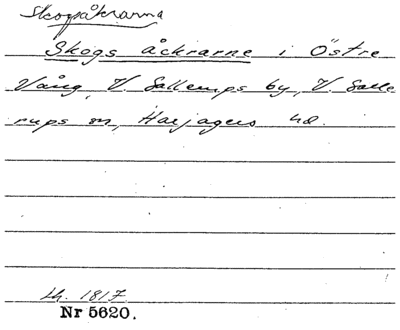 Skogsåkrarna
Skogs åckrarne i Östre
Vång, V. Sallerups by, V. Salle
rups sn, Harjagers hd.
Lh. 1817
Nr 5620.